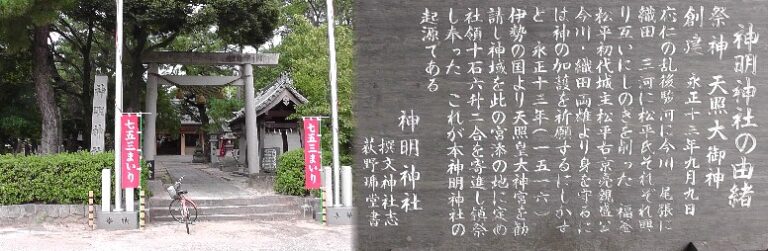 神明神社
七五三まいり
七五三まいり
神明神社の由緒
祭神 天照大御神
創建 永正十三年九月九日
応仁の乱後駿河に今川 尾張に
織田 三河に松平氏それぞれ興
り互いにしのぎを削った 福釜
松平初代城主松平右京亮親盛公
今川・織田両雄より身を守るに
は神の加護を祈願するにしかず
と 永正十三年(一五一六)
伊勢の国より天照皇大神宮を勧
請し神域を此の宮添の地に定め
社領十石六升二合を寄進し領祭
し奉った これが本神明神社の
起源である
神明神社
撰文神社志
荻野瑞堂書